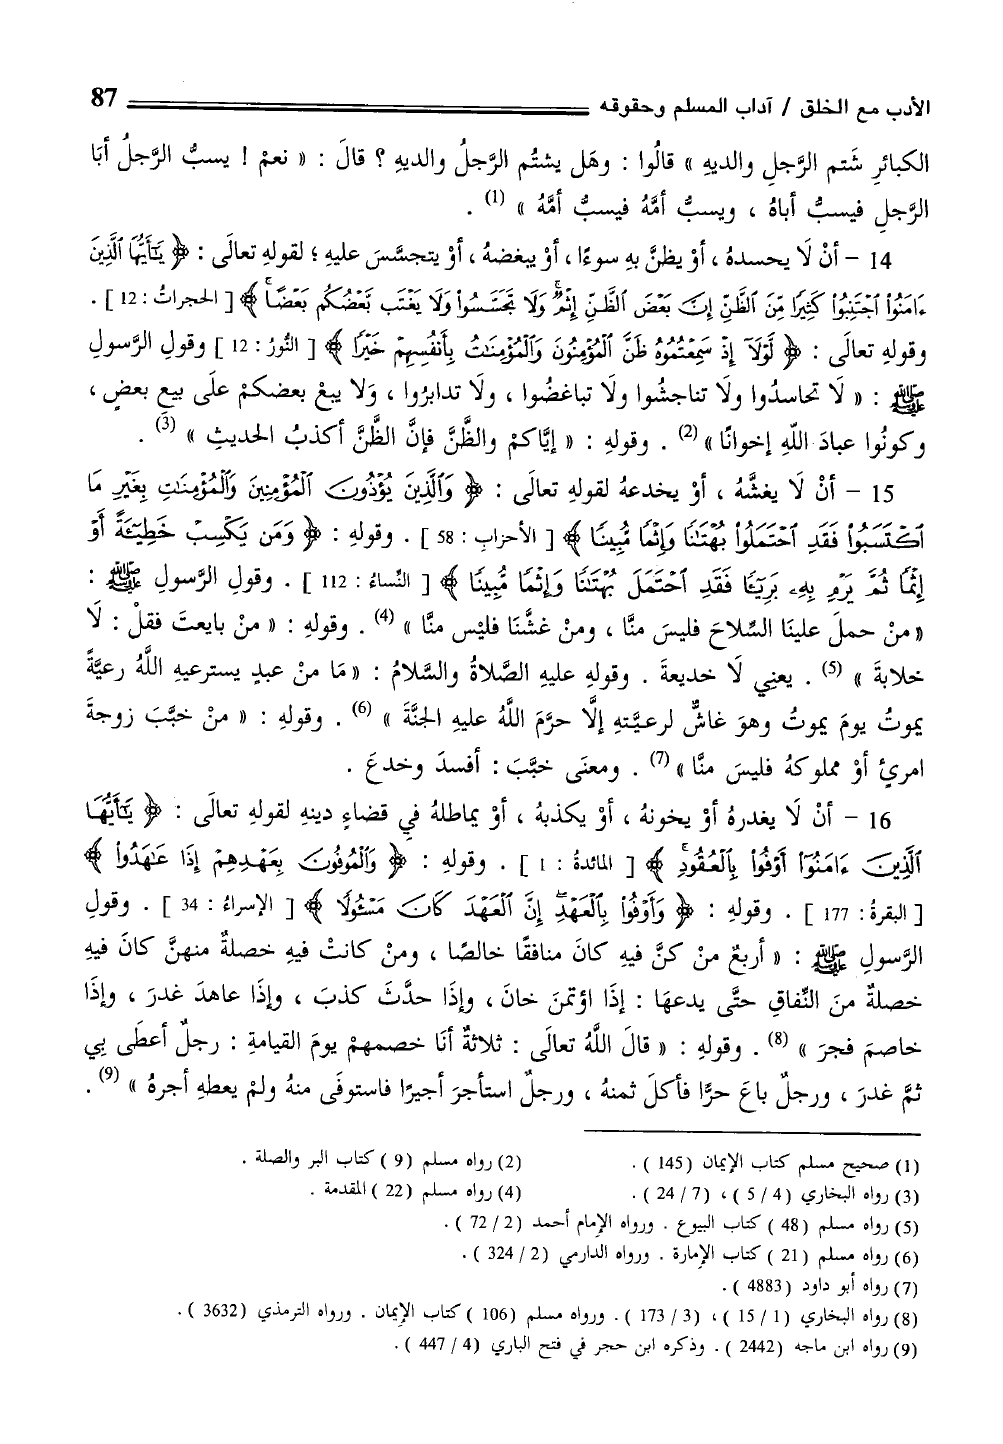 الأدب مع الخلق / آداب المسلم وحقوقه 87
الكبائرِ شَتم الرَّجلِ والديهِ » قالُوا : وهَل يشتُم الرَّجلُ والديهِ ؟ قالَ : « نعمْ ! يسبُّ الرَّجلُ أبَا
الرَّجلِ فيسبُّ أباهُ ، ويسبُّ أمَّهُ فيسبُّ أمَّهُ » (1) .
14 – أنْ لَا يحسدهُ ، أوْ يظنَّ بهِ سوءًا ، أوْ يبغضهُ ، أوْ يتجسَّسَ عليهِ ؛ لقولهِ تعالَى : ﴿ يَٰٓأَيُّهَا ٱلَّذِينَ
ءَامَنُوا۟ ٱجْتَنِبُوا۟ كَثِيرًا مِّنَ ٱلظَّنِّ إِنَّ بَعْضَ ٱلظَّنِّ إِثْمٌ ۖ وَلَا تَجَسَّسُوا۟ وَلَا يَغْتَب بَّعْضُكُم بَعْضًا ۚ ﴾ [ الحجراتُ : 12 ] .
وقولهِ تعالَى : ﴿ لَّوْلَآ إِذْ سَمِعْتُمُوهُ ظَنَّ ٱلْمُؤْمِنُونَ وَٱلْمُؤْمِنَٰتُ بِأَنفُسِهِمْ خَيْرًا ﴾ [ النُّورُ : 12 ] وقولِ الرَّسولِ
ﷺ : « لَا تحاسدُوا ولَا تناجشُوا ولَا تباغضُوا ، ولَا تدابرُوا ، وَلا يبعْ بعضكمْ علَى بيعِ بعضٍ ،
وكونُوا عبادَ اللَّهِ إخوانًا » (2) . وقولهِ : « إيَّاكمْ والظَّنَّ فإنَّ الظَّنَّ أكذبُ الحديثِ » (3) .
15 – أنْ لَا يغشَّهُ ، أوْ يخدعهُ لقولهِ تعالَى : ﴿ وَٱلَّذِينَ يُؤْذُونَ ٱلْمُؤْمِنِينَ وَٱلْمُؤْمِنَٰتِ بِغَيْرِ مَا
ٱكْتَسَبُوا۟ فَقَدِ ٱحْتَمَلُوا۟ بُهْتَٰنًا وَإِثْمًا مُّبِينًا ﴾ [ الأحزابِ : 58 ] . وقولهِ : ﴿ وَمَن يَكْسِبْ خَطِيٓـَٔةً أَوْ
إِثْمًا ثُمَّ يَرْمِ بِهِۦ بَرِيٓـًٔا فَقَدِ ٱحْتَمَلَ بُهْتَٰنًا وَإِثْمًا مُّبِينًا ﴾ [ النِّساءُ : 112 ] . وقولِ الرَّسولِ ﷺ :
« منْ حملَ علينَا السِّلاحَ فليسَ منَّا ، ومنْ غشَّنَا فليْس منَّا » (4) . وقولهِ : « منْ بايعتَ فقلْ : لَا
خلابةَ » (5) . يعنِي لَا خديعةَ . وقولهِ عليهِ الصَّلاةُ والسَّلامُ : « مَا منْ عبدٍ يسترعيهِ اللَّهُ رعيَّةً
يموتُ يومَ يموتُ وهوَ غاشٌّ لرعيَّتهِ إلَّا حرَّمَ اللَّهُ عليهِ الجنَّةَ » (6) . وقولهِ : « منْ خبَّبَ زوجةَ
امرئٍ أوْ مملوكهُ فليسَ منَّا » (7) . ومعنَى خبَّبَ : أفسدَ وخدعَ .
16 – أنْ لَا يغدرهُ أوْ يخونهُ ، أوْ يكذبهُ ، أوْ يماطلهُ في قضاءِ دينهِ لقولهِ تعالَى : ﴿ يَٰٓأَيُّهَا
ٱلَّذِينَ ءَامَنُوٓا۟ أَوْفُوا۟ بِٱلْعُقُودِ ۚ ﴾ [ المائدةُ : 1 ] . وقولهِ : ﴿ وَٱلْمُوفُونَ بِعَهْدِهِمْ إِذَا عَٰهَدُوا۟ ﴾
[ البقرةُ : 177 ] . وقولهِ : ﴿ وَأَوْفُوا۟ بِٱلْعَهْدِ ۖ إِنَّ ٱلْعَهْدَ كَانَ مَسْـُٔولًا ﴾ [ الإسراءُ : 34 ] . وقولِ
الرَّسولِ ﷺ : « أربعٌ منْ كنَّ فيهِ كانَ منافقًا خالصًا ، ومنْ كانتْ فيهِ خصلةٌ منهنَّ كانَ فيهِ
خصلةٌ منَ النِّفاقِ حتَّى يدعهَا : إذَا اؤتمنَ خانَ ، وإذَا حدَّثَ كذبَ ، وإذَا عاهدَ غدرَ ، وإذَا
خاصمَ فجرَ » (8) . وقولهِ : « قالَ اللَّهُ تعالَى : ثلاثةٌ أنَا خصمهمْ يومَ القيامةِ : رجلٌ أعطَى بِي
ثمَّ غدرَ ، ورجلٌ باعَ حرًّا فأكلَ ثمنهُ ، ورجلٌ استأجرَ أجيرًا فاستوفَى منهُ ولمْ يعطهِ أجرهُ » (9) .
(1) صحيح مسلم كتاب الإيمان ( 145 ) . (2) رواه مسلم ( 9 ) كتاب البر والصلة .
(3) رواه البخاري ( 4 / 5 ) ، ( 7 / 24 ) . (4) رواه مسلم ( 22 ) المقدمة .
(5) رواه مسلم ( 48 ) كتاب البيوع . ورواه الإمام أحمد ( 2 / 72 ) .
(6) رواه مسلم ( 21 ) كتاب الإمارة . ورواه الدارمي ( 2 / 324 ) .
(7) رواه أبو داود ( 4883 ) .
(8) رواه البخاري ( 1 / 15 ) ، ( 3 / 173 ) . ورواه مسلم ( 106 ) كتاب الإيمان . ورواه الترمذي ( 3632 ) .
(9) رواه ابن ماجه ( 2442 ) . وذكره ابن حجر في فتح الباري ( 4 / 447 ) .